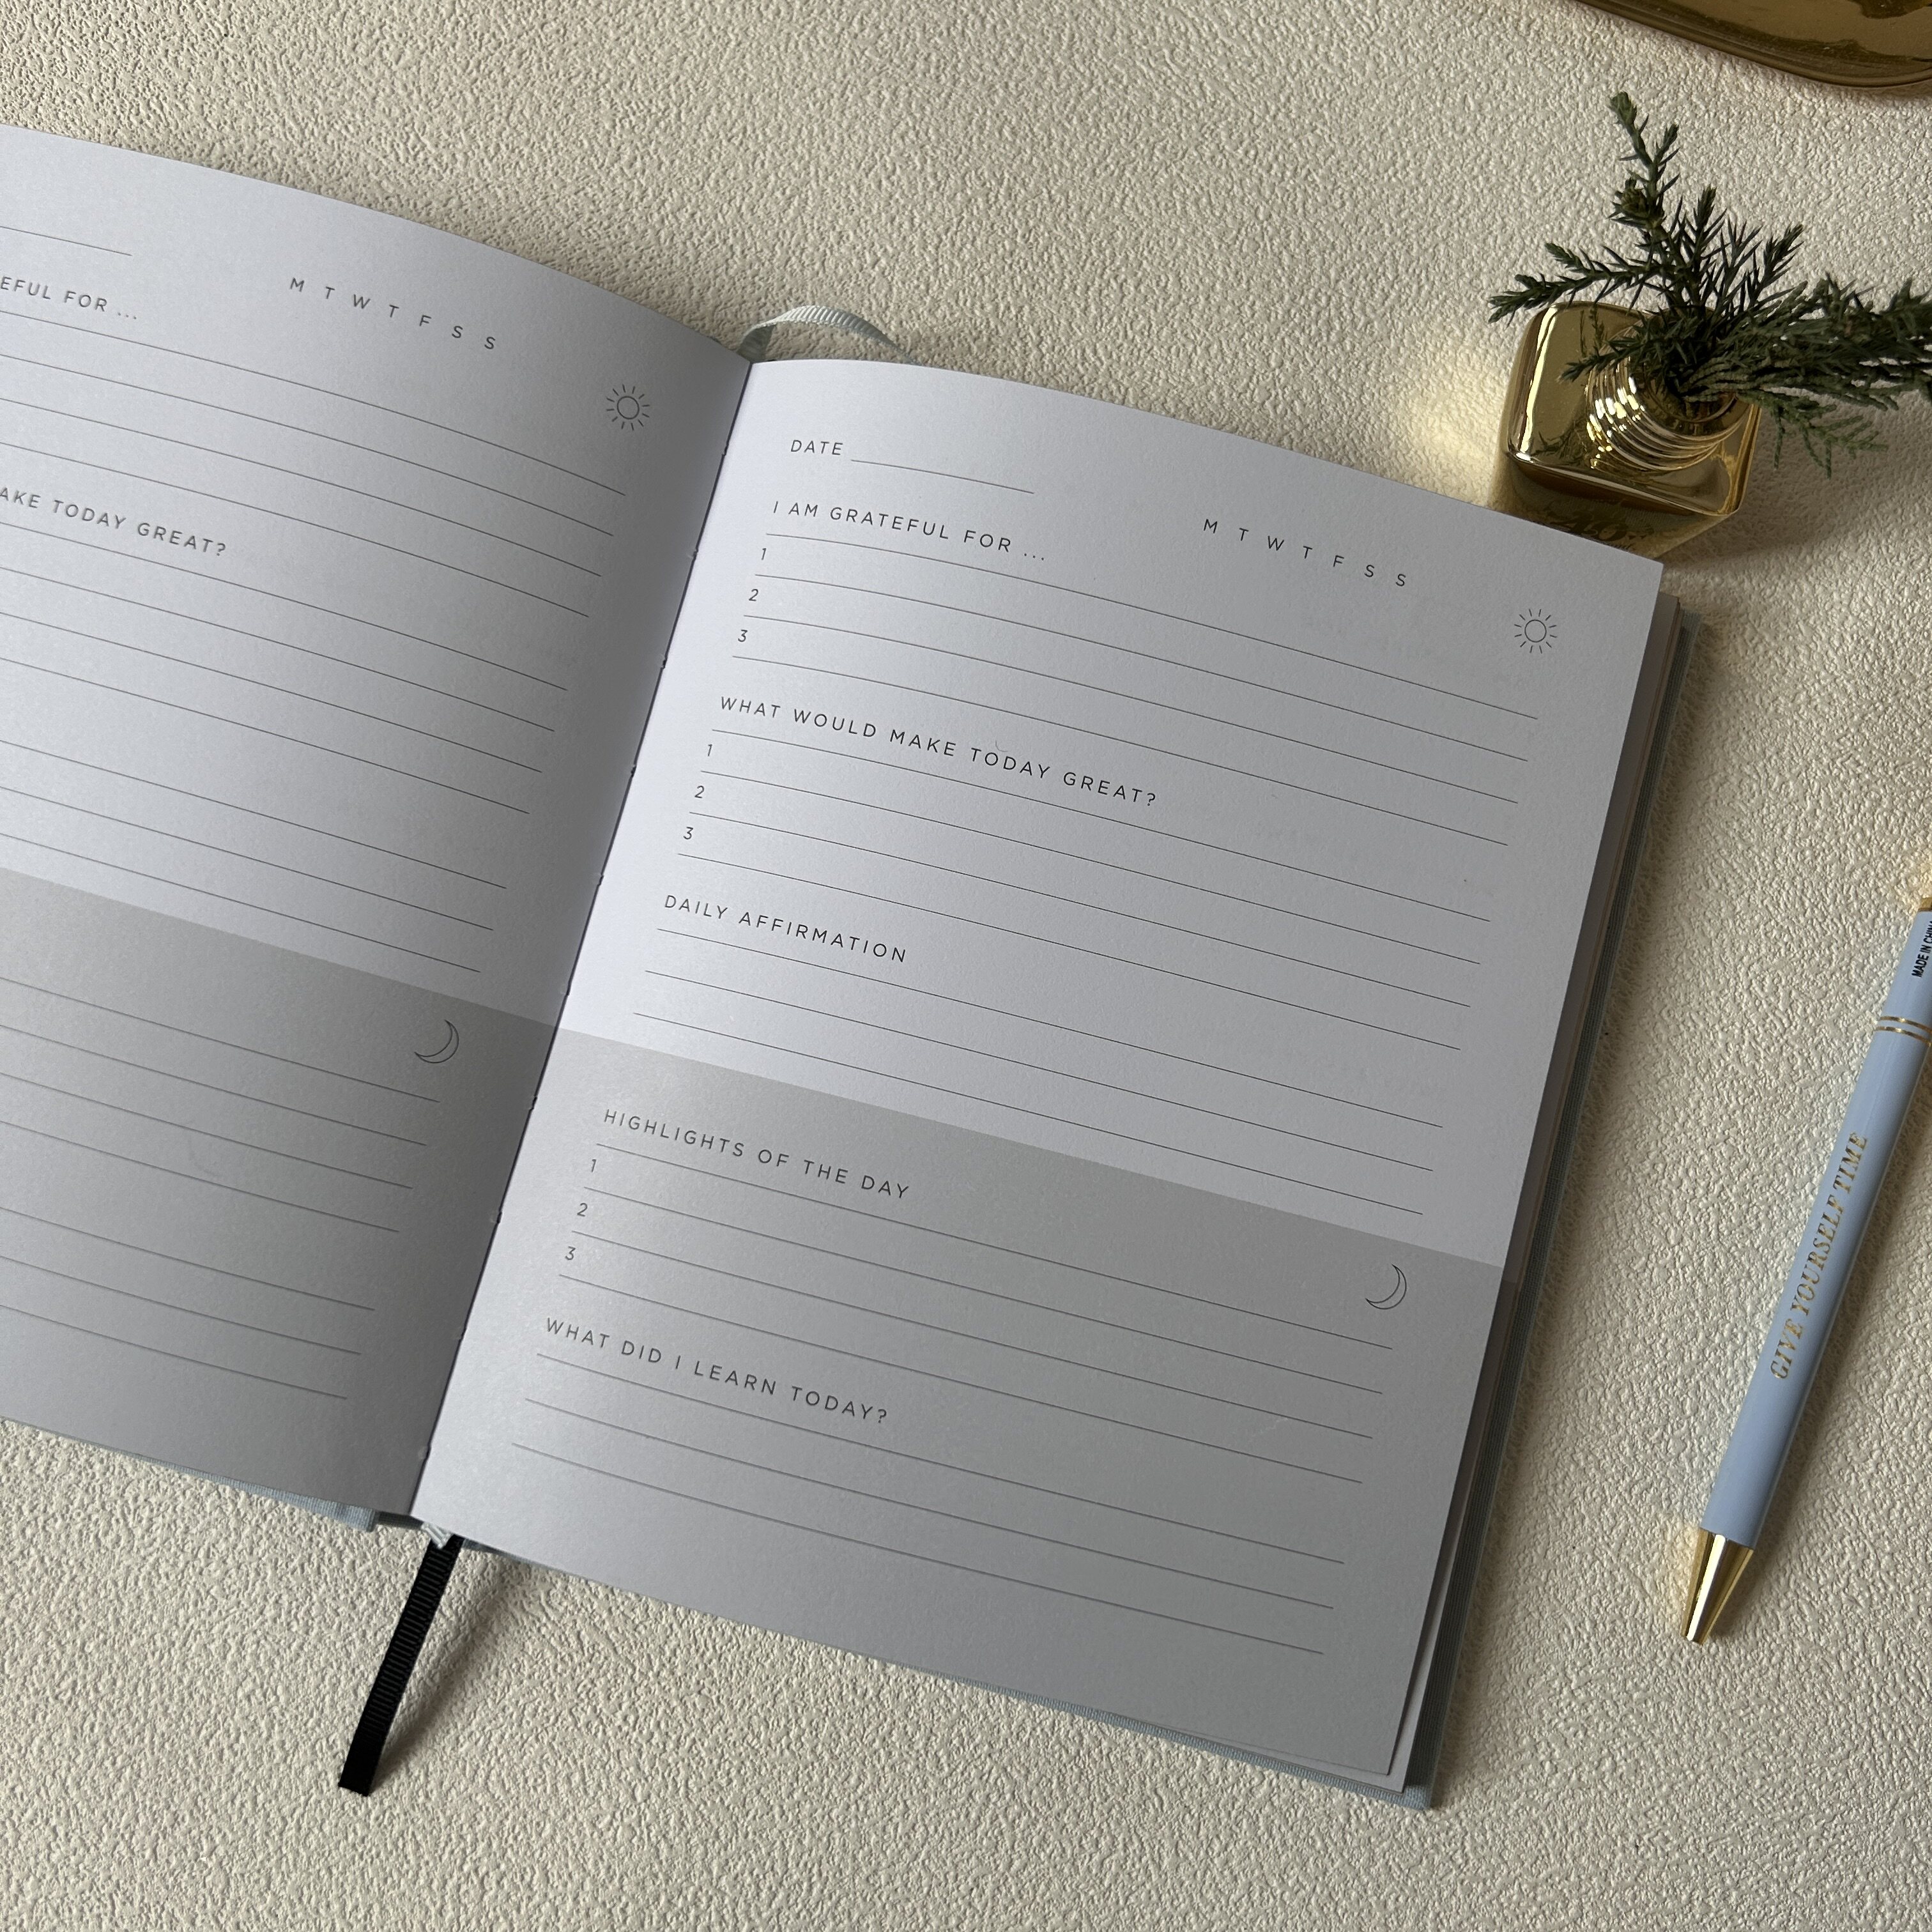 EFUL FOR ...
M T W T F S S
AKE TODAY GREAT?
DATE
M T W T F S S
I AM GRATEFUL FOR ...
1
2
3
WHAT WOULD MAKE TODAY GREAT?
1
2
3
DAILY AFFIRMATION
HIGHLIGHTS OF THE DAY
1
2
3
WHAT DID I LEARN TODAY?
GIVE YOURSELF TIME
MADE IN CHINA